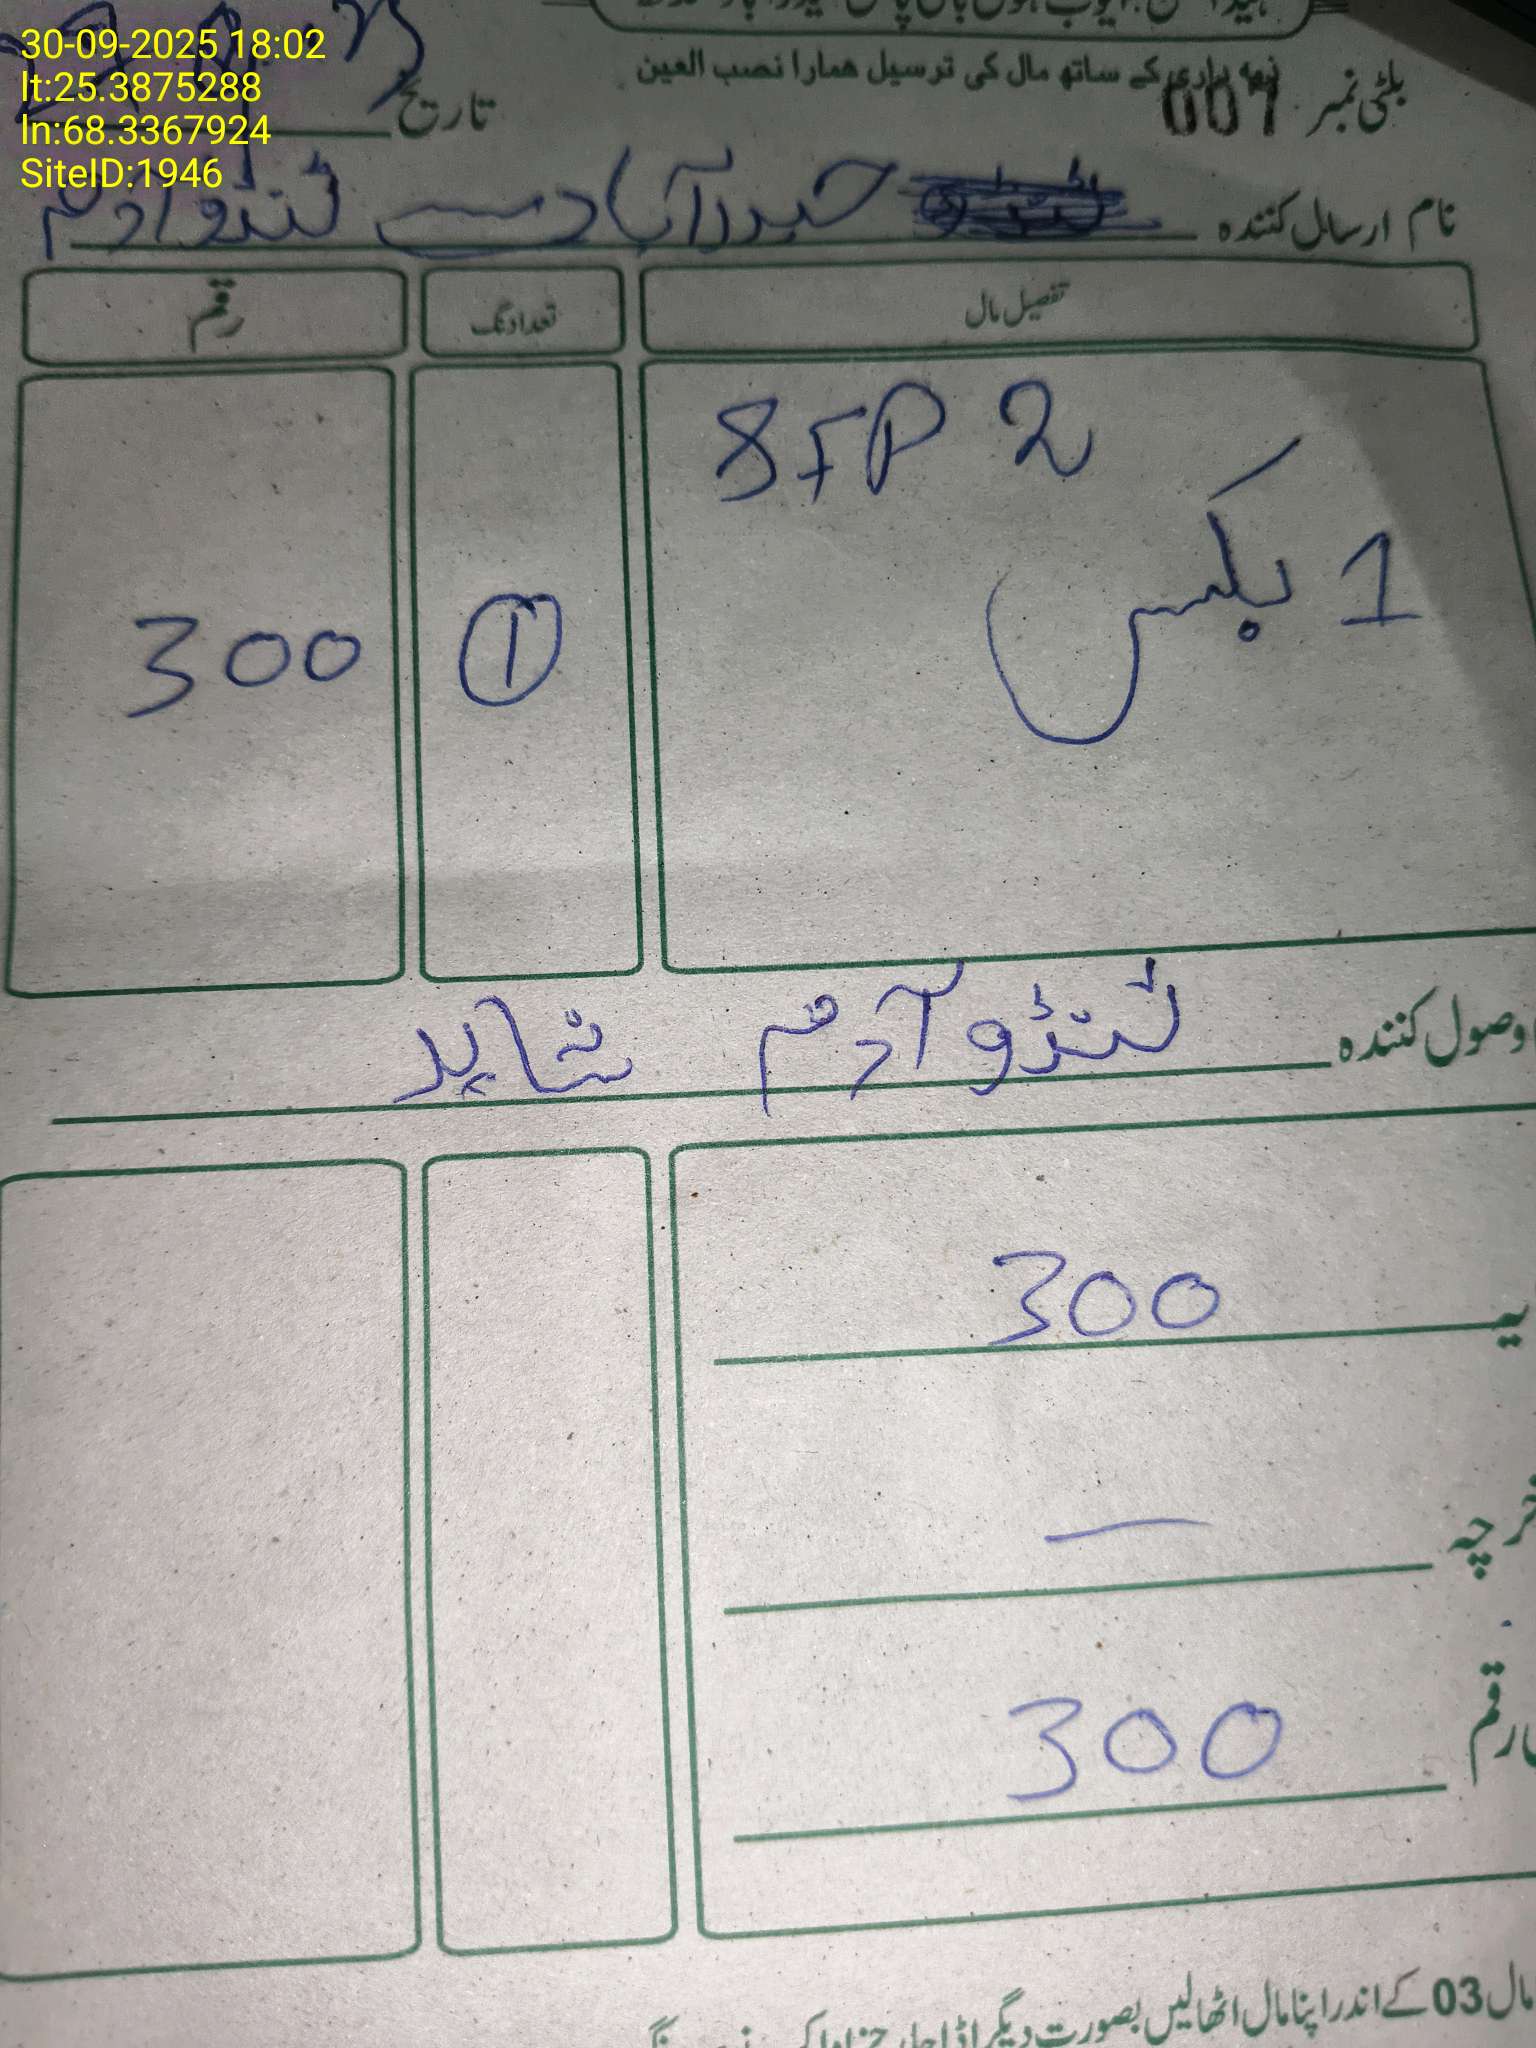 30-09-2025 18:02
lt:25.3875288
ln:68.3367924
SiteID:1946
ذمہ داری کے ساتھ مال کی ترسیل ھمارا نصب العین
بلٹی نمبر 007 تاریخ
نام ارسال کنندہ حیدرآباد سے ٹنڈوادم
تفصیل مال تعداد نگ رقم
SFP 2
1 بکس
1 300
وصول کنندہ ٹنڈوآدم شاہد
300
خرچہ —
رقم 300
مال 03 کے اندر اپنا مال اٹھالیں بصورت دیگر